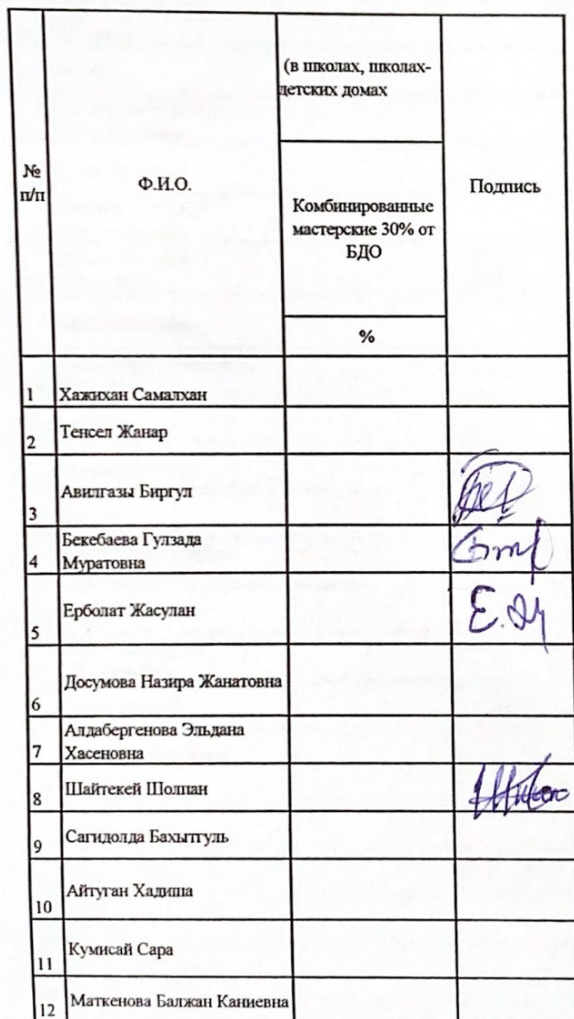 (в школах, школах-
детских домах
№
п/п
Ф.И.О.
Подпись
Комбинированные
мастерские 30% от
БДО
%
1 Хажихан Самалхан
2 Тенсел Жанар
3 Авилгазы Биргул
4 Бекебаева Гулзада
Муратовна
5 Ерболат Жасулан
6 Досумова Назира Жанатовна
7 Алдабергенова Эльдана
Хасеновна
8 Шайтекей Шолпан
9 Сагидолда Бахытгуль
10 Айтуган Хадиша
11 Кумисай Сара
12 Маткенова Балжан Каниевна